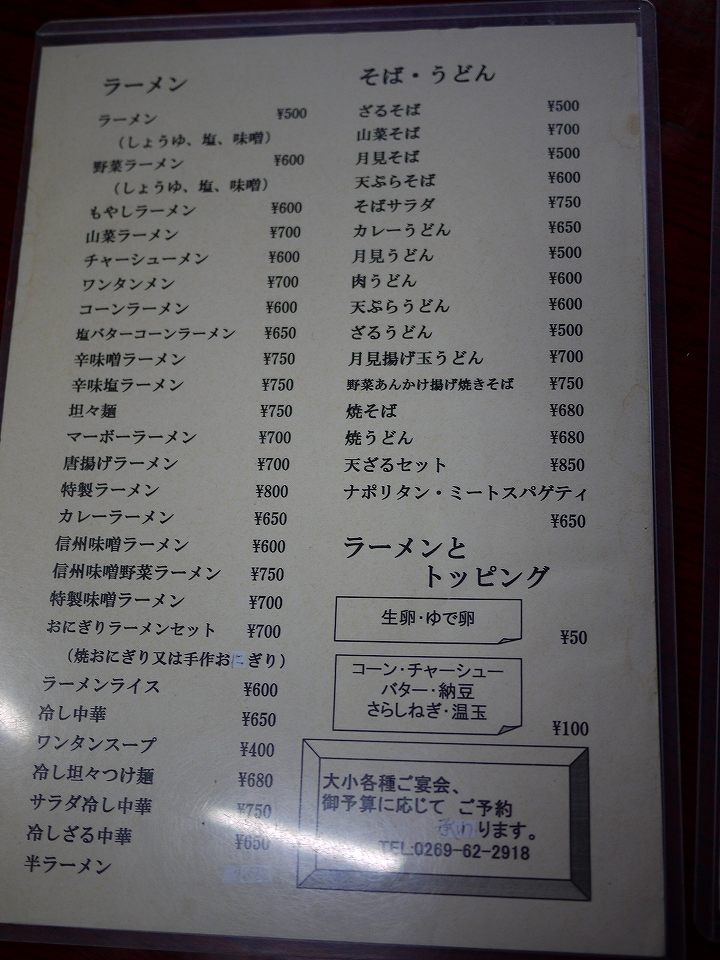 ラーメン
ラーメン ¥500
（しょうゆ、塩、味噌）
野菜ラーメン ¥600
（しょうゆ、塩、味噌）
もやしラーメン ¥600
山菜ラーメン ¥700
チャーシューメン ¥600
ワンタンメン ¥700
コーンラーメン ¥600
塩バターコーンラーメン ¥650
辛味噌ラーメン ¥750
辛味塩ラーメン ¥750
坦々麺 ¥750
マーボーラーメン ¥700
唐揚げラーメン ¥700
特製ラーメン ¥800
カレーラーメン ¥650
信州味噌ラーメン ¥600
信州味噌野菜ラーメン ¥750
特製味噌ラーメン ¥700
おにぎりラーメンセット ¥700
（焼おにぎり又は手作おにぎり）
ラーメンライス ¥600
冷し中華 ¥650
ワンタンスープ ¥400
冷し坦々つけ麺 ¥680
サラダ冷し中華 ¥750
冷しざる中華 ¥650
半ラーメン
そば・うどん
ざるそば ¥500
山菜そば ¥700
月見そば ¥500
天ぷらそば ¥600
そばサラダ ¥750
カレーうどん ¥650
月見うどん ¥500
肉うどん ¥600
天ぷらうどん ¥600
ざるうどん ¥500
月見揚げ玉うどん ¥700
野菜あんかけ揚げ焼きそば ¥750
焼そば ¥680
焼うどん ¥680
天ざるセット ¥850
ナポリタン・ミートスパゲティ
¥650
ラーメンと
トッピング
生卵・ゆで卵
¥50
コーン・チャーシュー
バター・納豆
さらしねぎ・温玉
¥100
大小各種ご宴会、
御予算に応じて ご予約
承ります。
TEL:0269-62-2918